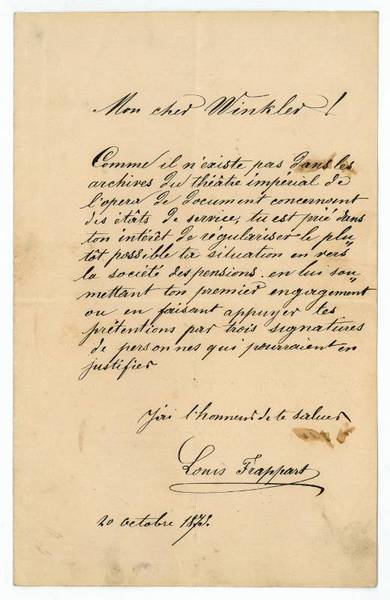 Mon cher Winkler !
Comme il n'existe pas dans les
archives du théâtre impérial de
l'opera de document concernent
dis états de service, tu est prié dans
ton intérêt de régulariser le plu„
tôt possible ta situation en vers
la société des pensions en lui sou„
mettant ton premier engagement
ou en faisant appuyer tes
prétentions par trois signatures
de personnes qui pourraient en
justifier
J'ai l'honneur de te saluer
Louis Frappart
20 octobre